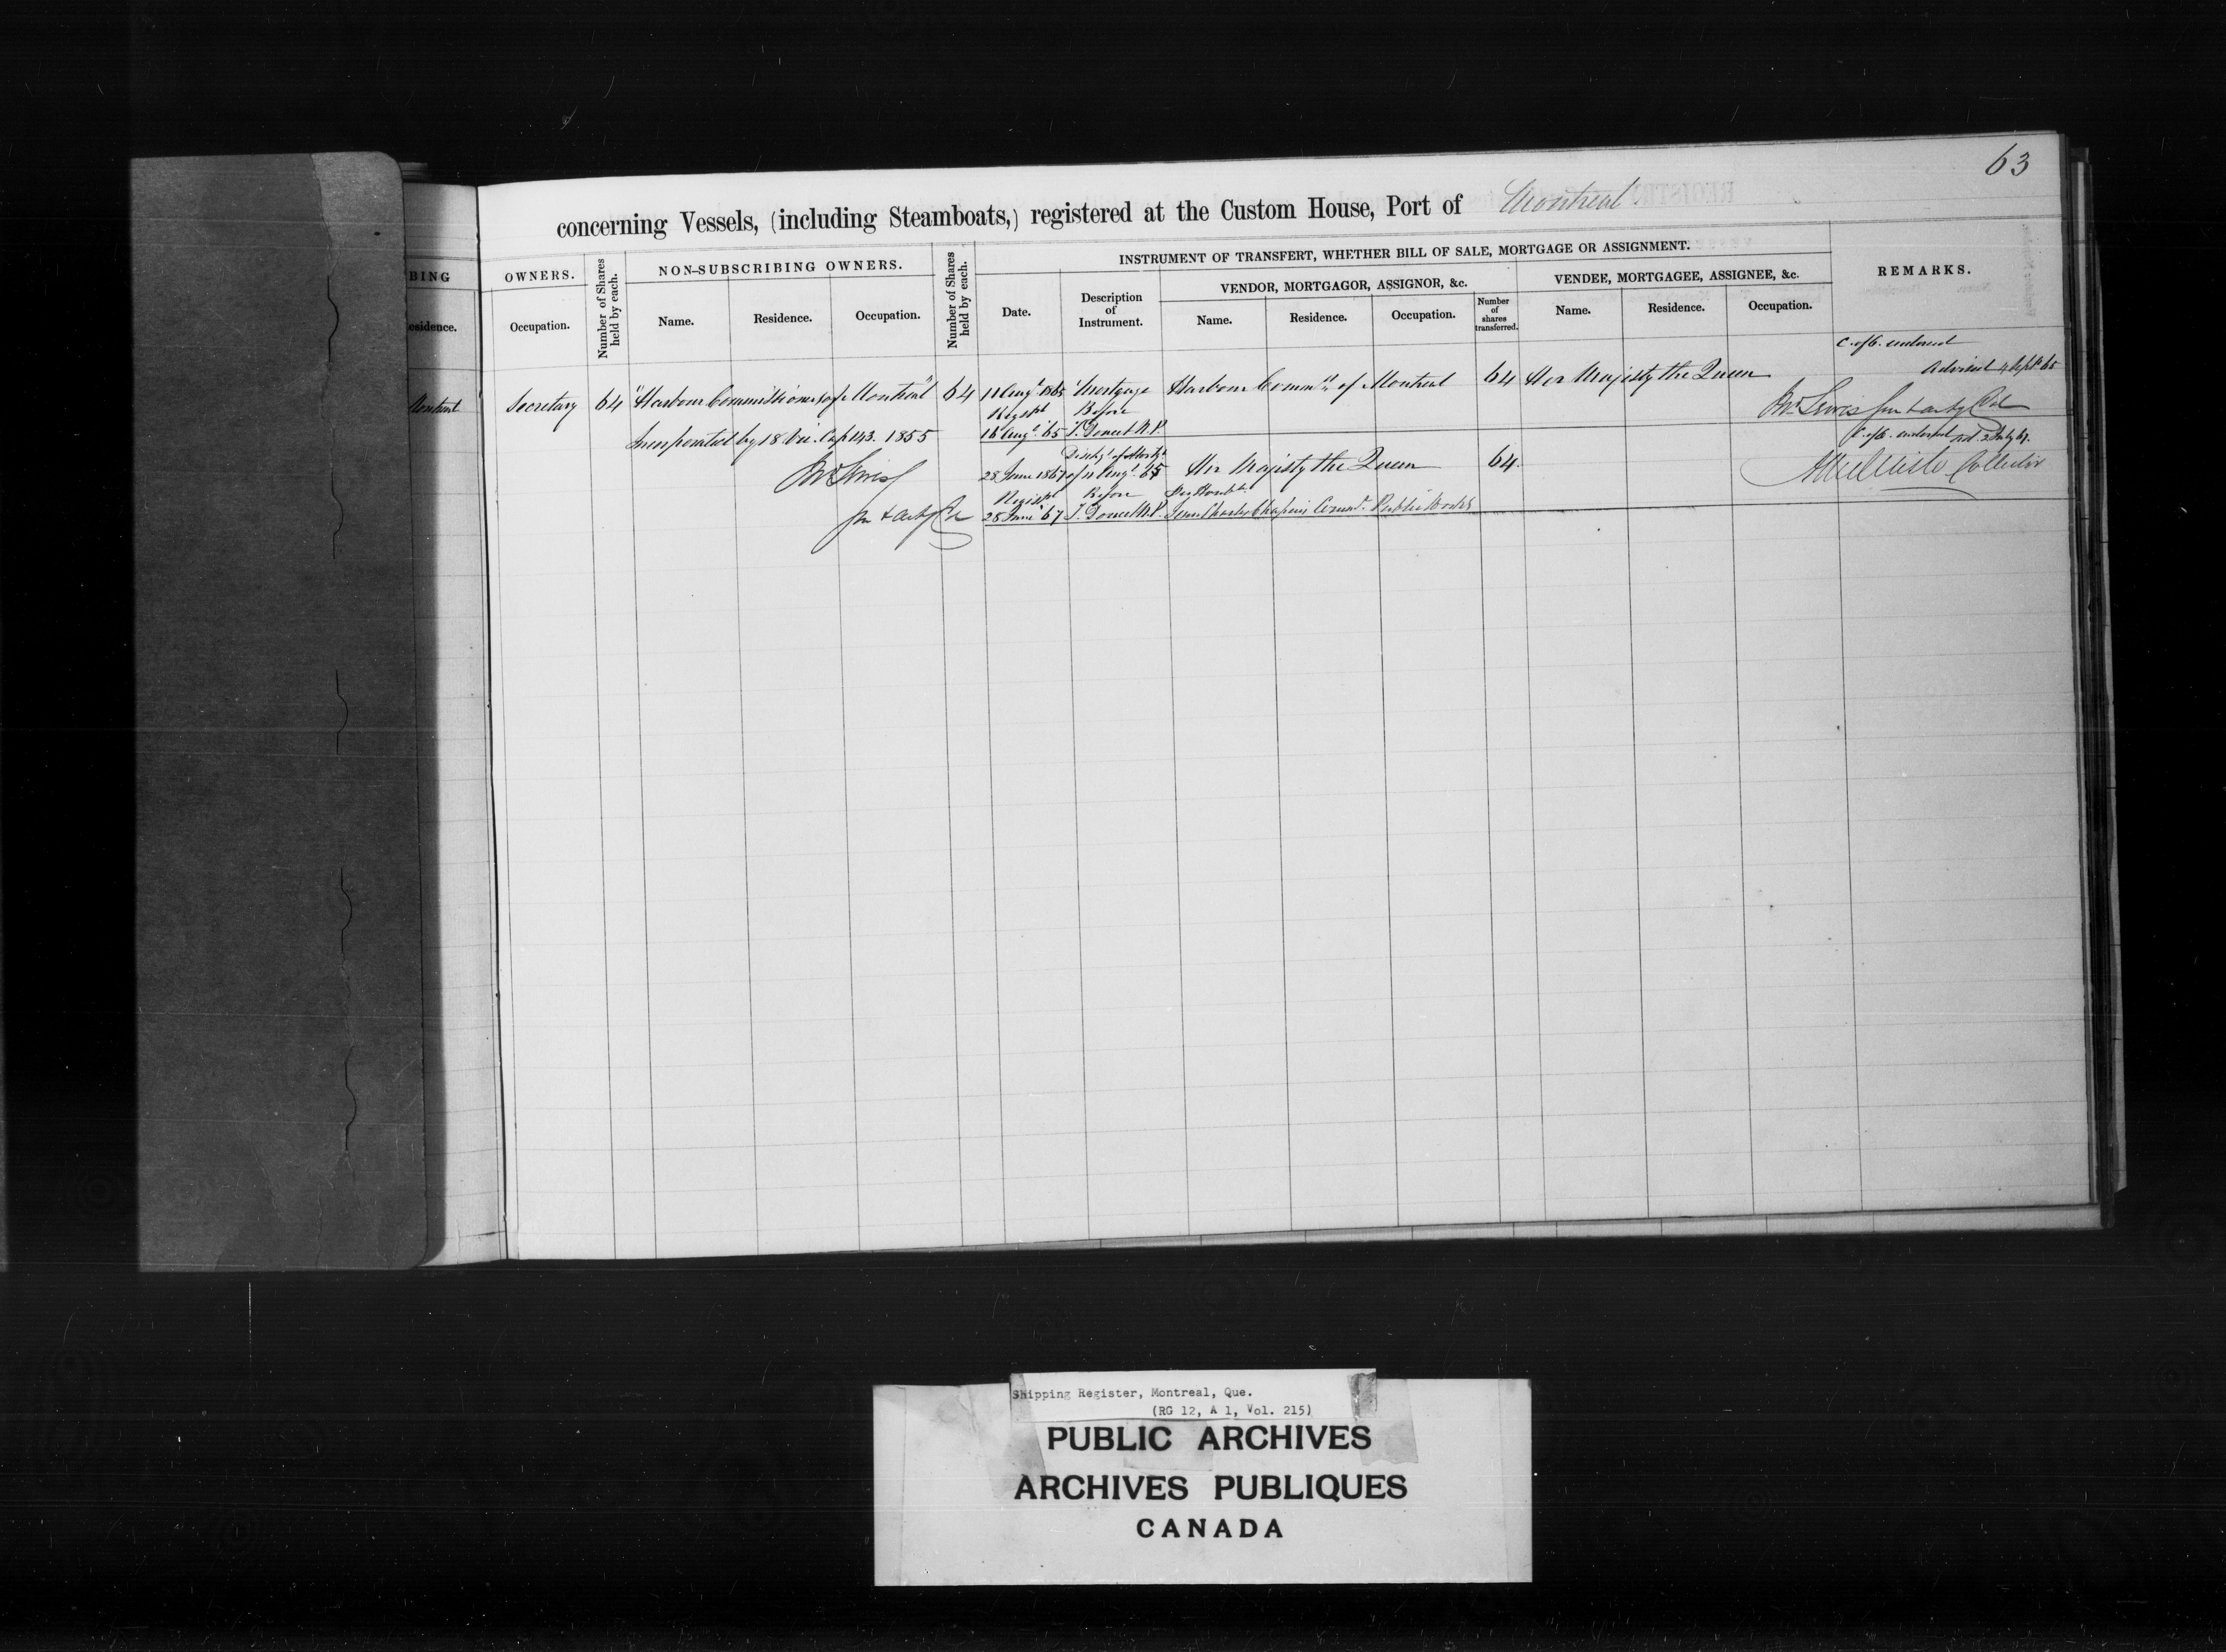 63
concerning Vessels, (including Steamboats,) registered at the Custom House, Port of Montreal
BING
OWNERS.
Number of Shares held by each.
NON-SUBSCRIBING OWNERS.
Number of Shares held by each.
INSTRUMENT OF TRANSFERT, WHETHER BILL OF SALE, MORTGAGE OR ASSIGNMENT.
REMARKS.
VENDOR, MORTGAGOR, ASSIGNOR, &c.
VENDEE, MORTGAGEE, ASSIGNEE, &c.
esidence.
Occupation.
Name.
Residence.
Occupation.
Date.
Description of Instrument.
Name.
Residence.
Occupation.
Number of shares transferred.
Name.
Residence.
Occupation.
C. of O. endorsed
Advised 4 Sept 65
Montreal Secretary 64 "Harbour Commissioners of Montreal" 64 11 Augt 1865 Mortgage Harbour Commrs of Montreal 64 Her Majesty the Queen
Regist Before
Incorporated by 18 Vic. Cap 143. 1855 16 Augt 65 T. Doucet N.P.
C. of O. endorsed 2 July 67.
Dischge of Mortge
28 June 1867 of 11 Augt 65 Her Majesty the Queen 64.
Collector
Regist Before
28 June 67 T. Doucet N.P. Jean Charles Chapais Commr Public Works
Shipping Register, Montreal, Que.
(RG 12, A 1, Vol. 215)
PUBLIC ARCHIVES
ARCHIVES PUBLIQUES
CANADA